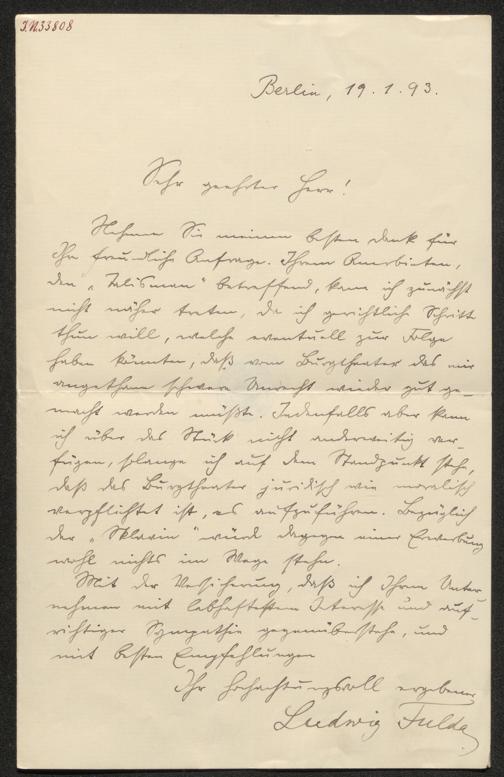 I.N.33808
Berlin, 19.1.93.
Sehr geehrter Herr!
Nehmen Sie meinen besten Dank für
Ihre freundliche Anfrage. Ihrem Anerbieten,
den „Talisman" betreffend, kann ich zunächst
nicht näher treten, da ich gerichtliche Schritte
thun will, welche eventuell zur Folge
haben könnten, daß vom Burgtheater das mir
angethane schwere Unrecht wieder gut ge-
macht werden müßte. Jedenfalls aber kann
ich über das Stück nicht anderweitig ver-
fügen, solange ich auf dem Standpunkt stehe,
daß das Burgtheater juridisch wie moralisch
verpflichtet ist, es aufzuführen. Bezüglich
der „Sklavin" würde dagegen einer Erwerbung
wohl nichts im Wege stehn.
Mit der Versicherung, daß ich Ihrem Unter-
nehmen mit lebhaftestem Interesse und auf-
richtiger Sympathie gegenüberstehe, und
mit besten Empfehlungen
Ihr hochachtungsvoll ergebener
Ludwig Fulda